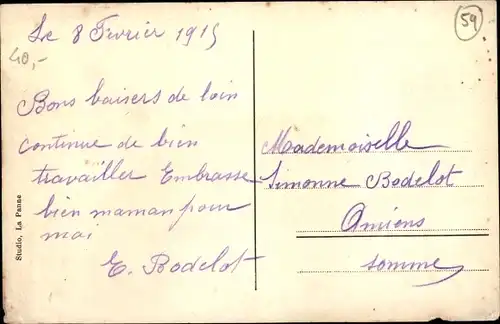 Le 8 Février 1915
59
40,-
Bons baisers de loin
continue de bien
travailler Embrasse
bien maman pour
moi
E. Bodelot
Maademoiselle
Simonne Bodelot
Amiens
Somme
Studio, La Panne